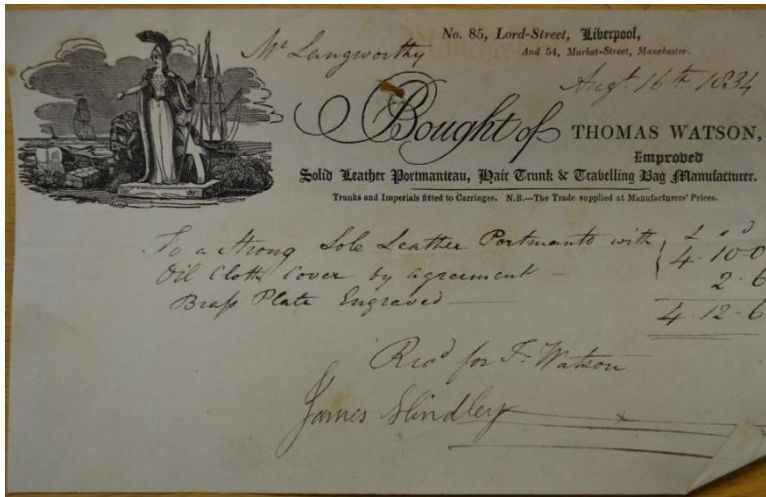 No. 85, Lord-Street, Liverpool,
And 54, Market-Street, Manchester.
Mr Langworthy
Augt. 16th 1834
Bought of THOMAS WATSON,
Improved
Solid Leather Portmanteau, Hair Trunk & Travelling Bag Manufacturer.
Trunks and Imperials fitted to Carriages. N.B.—The Trade supplied at Manufacturers' Prices.
£ s d
To a Strong Sole Leather Portmanto with } 4-10-0
Oil Cloth Cover by agreement -
Brass Plate Engraved — 2-6
4-12-6
Recd for T. Watson
James Hindley